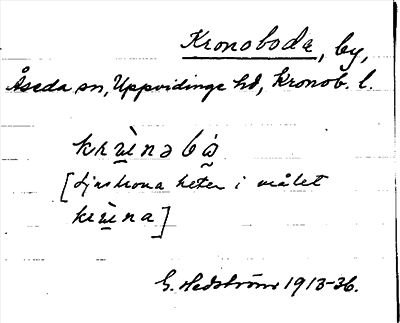 Kronoboda, by,
Åseda sn, Uppvidinge hd, Kronob. l.
krùnəbó
[ heter i målet
krùna]
G. Hedström 1913-36.